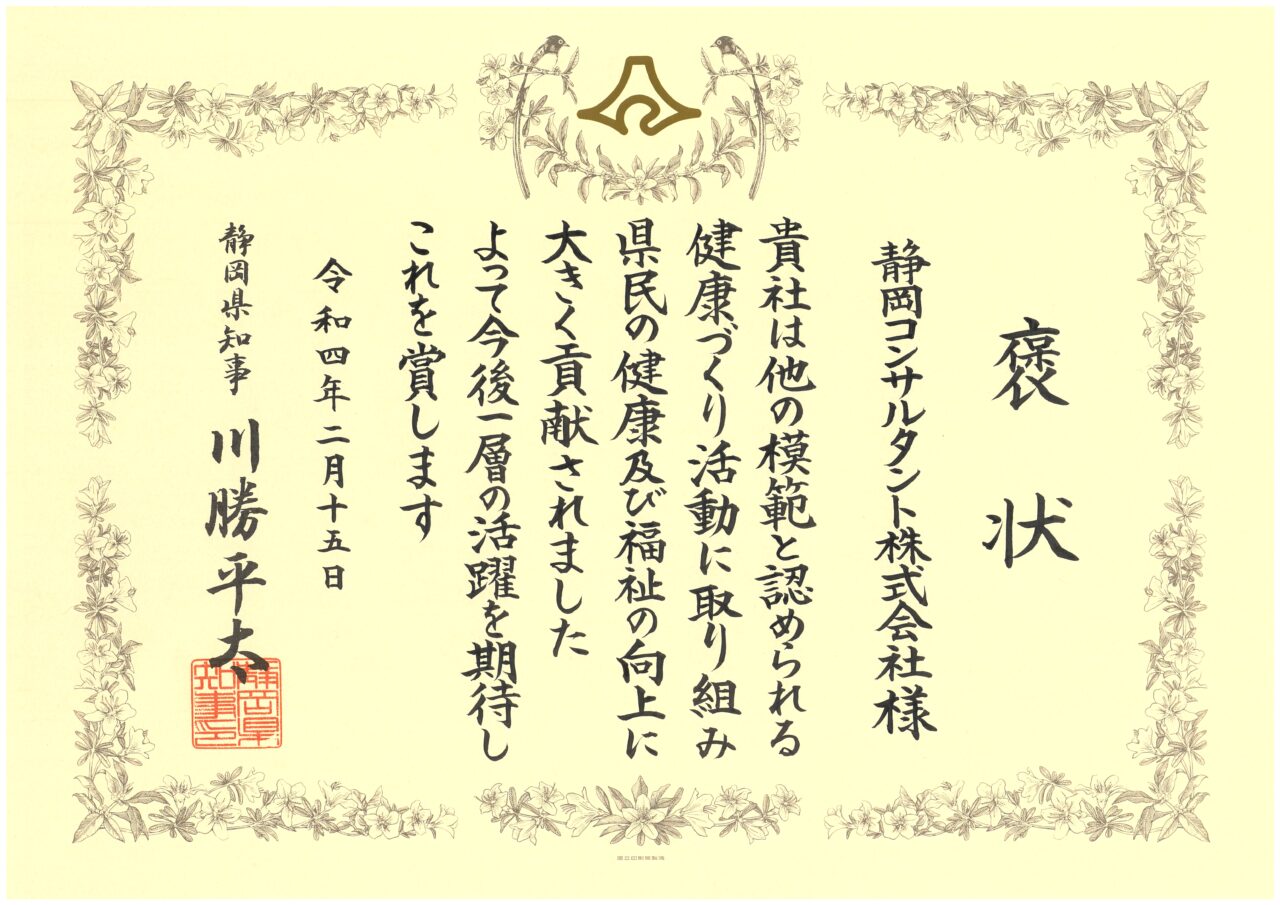 褒状
静岡コンサルタント株式会社様
貴社は他の模範と認められる
健康づくり活動に取り組み
県民の健康及び福祉の向上に
大きく貢献されました
よって今後一層の活躍を期待し
これを賞します
令和四年二月十五日
静岡県知事 川勝平太
静岡県知事之印
国立印刷局製造